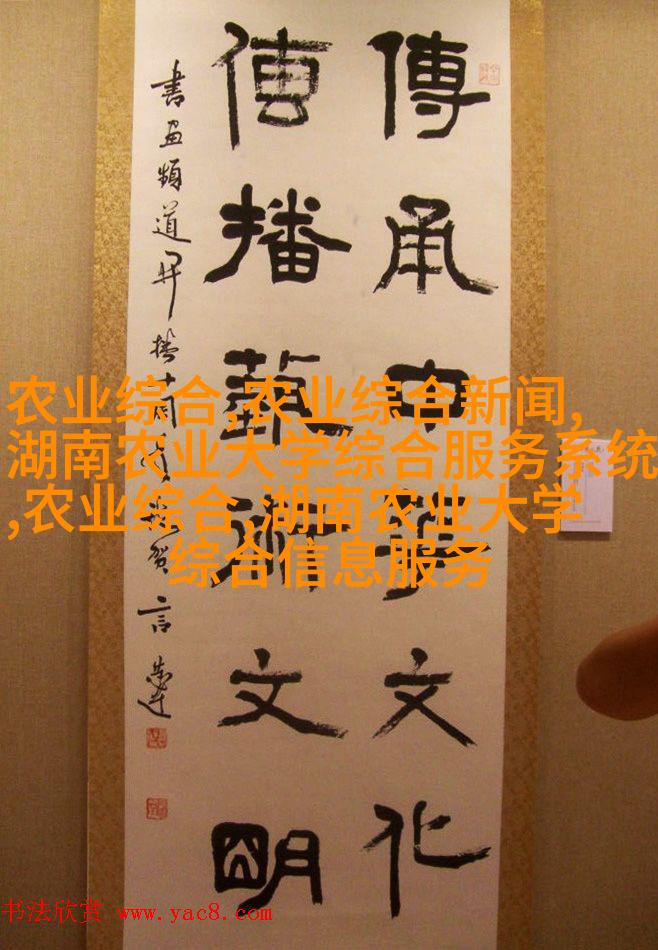 傳承中華文化
傳播藝術文明
書画頻道开播十周年贺 言恭达
农业综合,农业综合新闻,
湖南农业大学综合服务系统
,农业综合,湖南农业大学
综合信息服务
书法欣赏 www.yac8.com